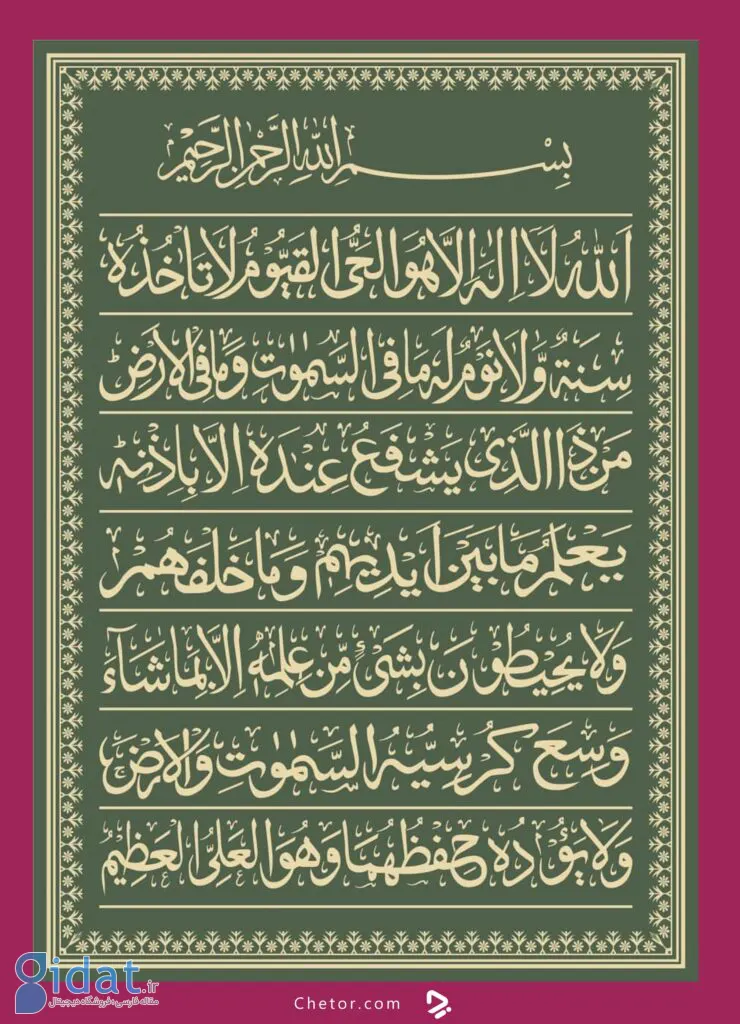 بِسْمِ اللهِ الرَّحْمٰنِ الرَّحِيْمِ
اَللهُ لَا اِلٰهَ اِلَّا هُوَ الْحَيُّ الْقَيُّوْمُ لَا تَاْخُذُهٗ
سِنَةٌ وَّلَا نَوْمٌ لَهٗ مَا فِي السَّمٰوٰتِ وَمَا فِي الْاَرْضِ ؕ
مَنْ ذَا الَّذِيْ يَشْفَعُ عِنْدَهٗ اِلَّا بِاِذْنِهٖ ؕ
يَعْلَمُ مَا بَيْنَ اَيْدِيْهِمْ وَمَا خَلْفَهُمْ
وَلَا يُحِيْطُوْنَ بِشَيْءٍ مِّنْ عِلْمِهٖ اِلَّا بِمَا شَآءَ
وَسِعَ كُرْسِيُّهُ السَّمٰوٰتِ وَالْاَرْضَ
وَلَا يَـُٔوْدُهٗ حِفْظُهُمَا وَهُوَ الْعَلِيُّ الْعَظِيْمُ
gidat.ir
مقاله فارسی، فروشگاه دیجیتال
Chetor.com